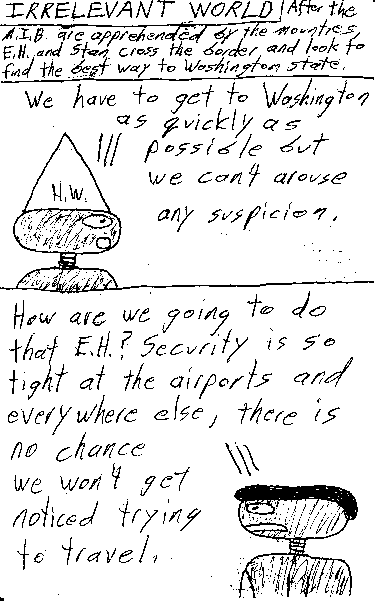 IRRELEVANT WORLD / After the
M.I.B. are apprehended by the mounties,
E.H. and Stan cross the border, and look to
find the best way to Washington state.
We have to get to Washington
as quickly as
possible but
we can't arouse
any suspicion.
H.W.
How are we going to do
that E.H.? Security is so
tight at the airports and
everywhere else, there is
no chance
we won't get
noticed trying
to travel.